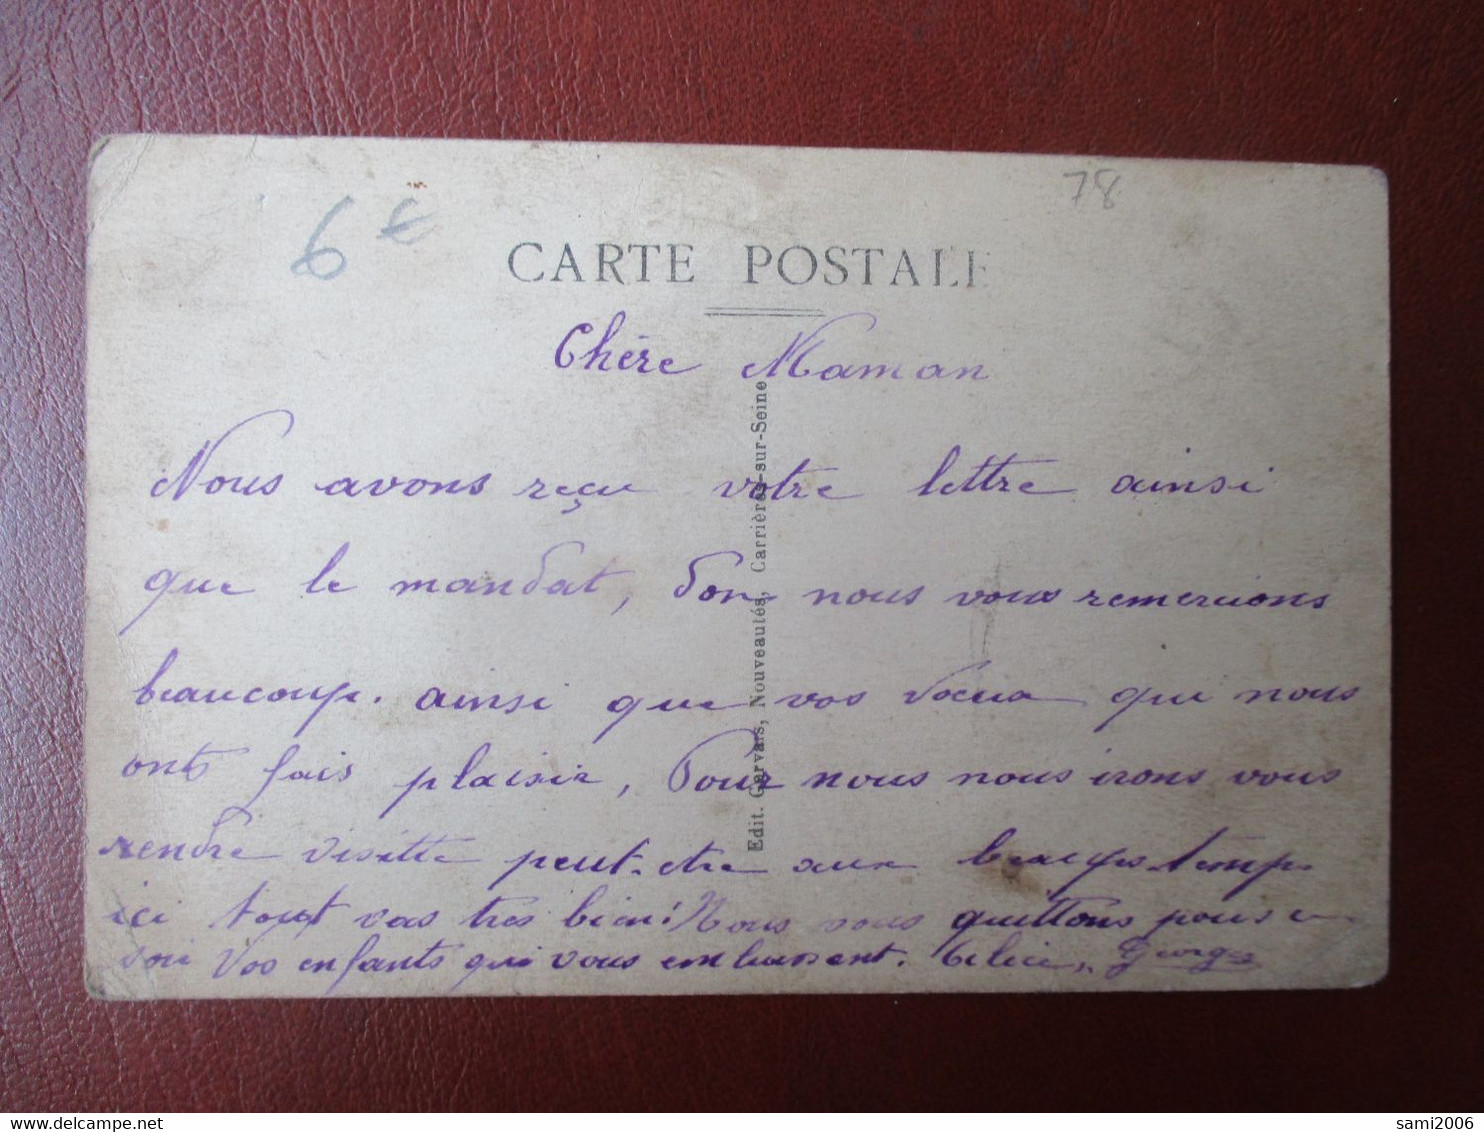 6 €
78
CARTE POSTALE
Chère Maman
Nous avons reçu votre lettre ainsi
que le mandat, don nous vous remercions
beaucoup. ainsi que vos voeux qui nous
onts fais plaisir, Pour nous nous irons vous
rendre visitte peut-etre aux beaux temps
ici tout vas tres bien! Nous vous quittons pour ce
soir Vos enfants qui vous embrassent. Georges
Edit. Gervais, Nouveautés, Carrières-sur-Seine
sami2006
delcampe.net